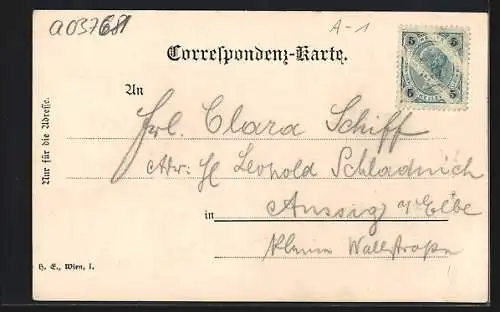 a037681
A-1
Correspondenz-Karte.
5 5
5 5
HELLER
An
Frl. Clara Schiff
Adr: H Leopold Schladnich
in Aussig a/Elbe
Kleine Wallstraße
Nur für die Adresse.
H. E., Wien, I.